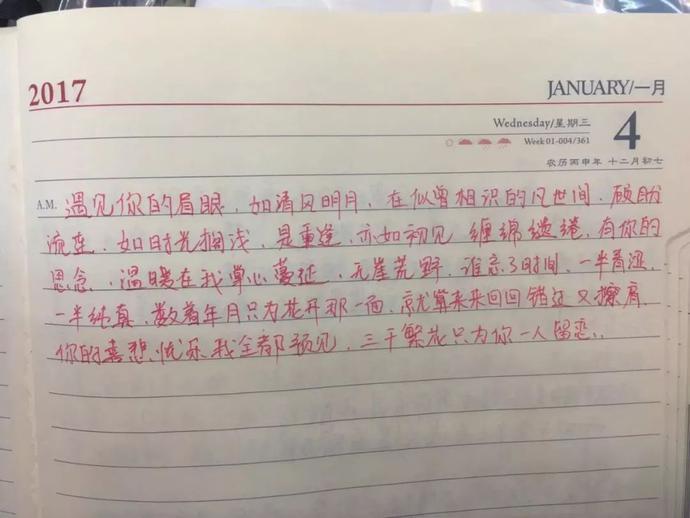 2017
JANUARY/一月
Wednesday/星期三
Week 01-004/361
4
农历丙申年 十二月初七
A.M. 遇见你的眉眼,如清风明月,在似曾相识的凡世间,顾盼
流连,如时光搁浅,是重逢,亦如初见 缠绵缱绻,有你的
思念,温暖在我掌心蔓延,无崖荒野,谁忘了时间,一半青涩,
一半纯真,数着年月只为花开那一面,就算来来回回错过又擦肩,
你的喜悲忧乐我全都预见,三千繁花只为你一人留恋..